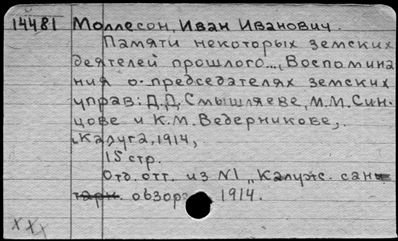 14481 Моллесон, Иван Иванович.
Памяти некоторых земских
деятелей прошлого... (Воспомина
ния о председателях земских
управ: Д.Д. Смышляеве, М.М. Син-
цове и К.М. Ведерникове).
Калуга, 1914,
15 стр.
Отд. отт. из N1 „Калуж. сан
обзора 1914.
XXX